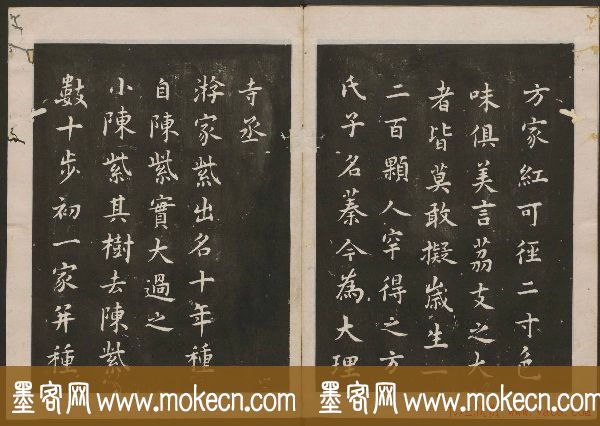 方家紅可徑二寸色
味俱美言荔支之大
者皆莫敢擬歲生一
二百顆人罕得之方
氏子名蓁今為大理
寺丞
游家紫出名十年種
自陳紫實大過之
小陳紫其樹去陳紫
數十步初一家并種
墨客网 www.mokecn.com 墨客网 www.mokecn.com